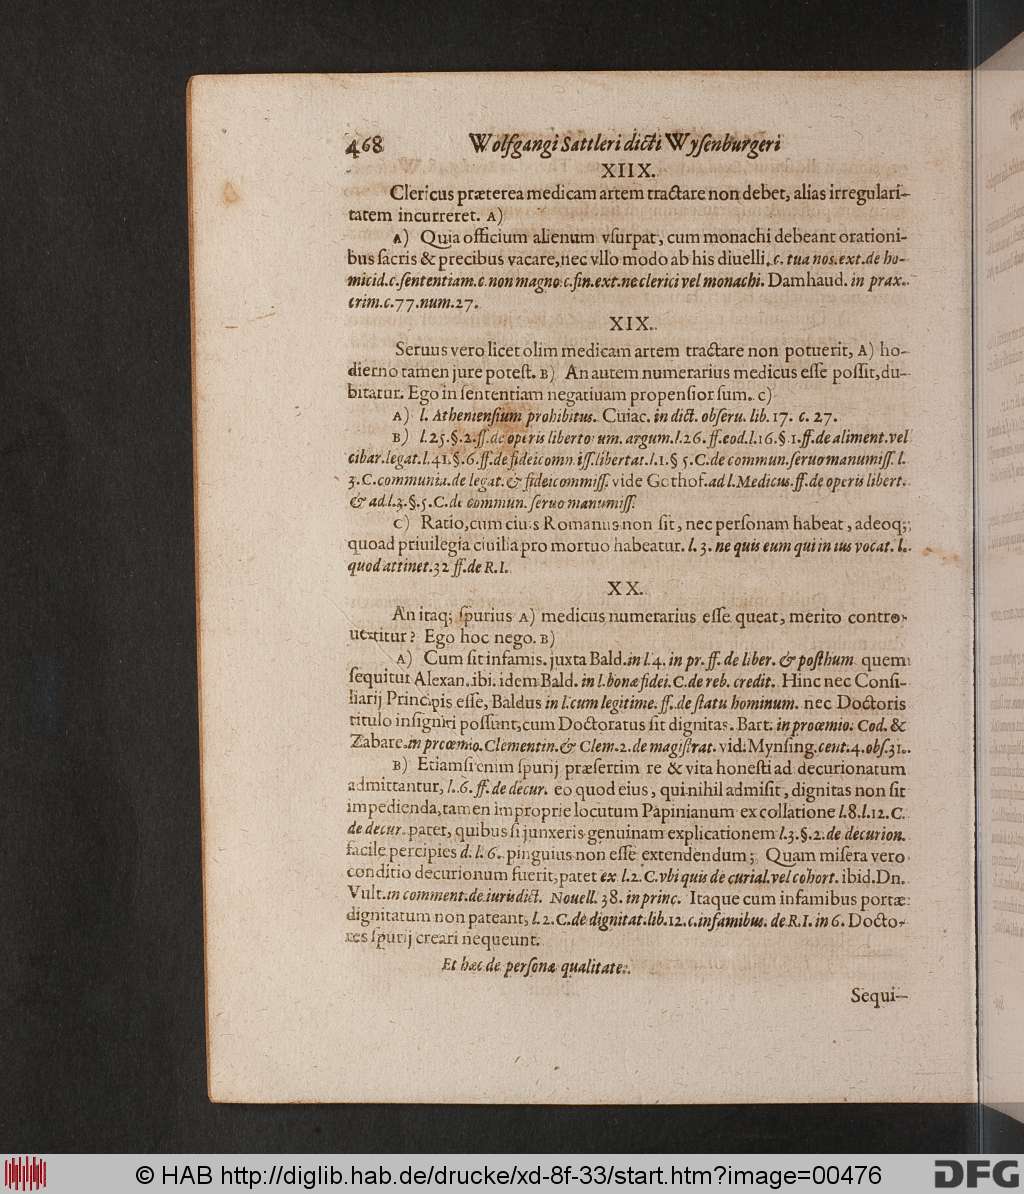 468 Wolfgangi Sattleri dicti Wysenburgeri
XIIX.
Clericus præterea medicam artem tractare non debet, alias irregulari-
tatem incurreret. A)
A) Quia officium alienum vsurpat, cum monachi debeant orationi-
bus sacris & precibus vacare, nec vllo modo ab his diuelli. c. tua nos. ext. de ho-
micid. c. sententiam. c. non magno. c. fin. ext. ne clerici vel monachi. Damhaud. in prax.
crim. c. 77. num. 27.
XIX.
Seruus vero licet olim medicam artem tractare non potuerit, A) ho-
dierno tamen jure potest. B) An autem numerarius medicus esse possit, du-
bitatur. Ego in sententiam negatiuam propensior sum. C)
A) l. Atheniensium prohibitus. Cuiac. in dict. obseru. lib. 17. c. 27.
B) l. 25. §. 2. ff. de operis libertorum. argum. l. 26. ff. eod. l. 16. §. 1. ff. de aliment. vel
cibar. legat. l. 41. §. 6. ff. de fideicommiss. libertat. l. 1. § 5. C. de commun. seruo manumiss. l.
3. C. communia. de legat. & fideicommiss. vide Gothof. ad l. Medicus. ff. de operis libert.
& ad l. 3. §. 5. C. de commun. seruo manumiss.
C) Ratio, cum ciuis Romanus non sit, nec personam habeat, adeoq;
quoad priuilegia ciuilia pro mortuo habeatur. l. 3. ne quis eum qui in ius vocat. l.
quod attinet. 32 ff. de R. I.
XX.
An itaq; spurius A) medicus numerarius esse queat, merito contro-
uertitur? Ego hoc nego. B)
A) Cum sit infamis. juxta Bald. in l. 4. in pr. ff. de liber. & posthum quem
sequitur Alexan. ibi. idem Bald. in l. bonæ fidei. C. de reb. credit. Hinc nec Consi-
liarij Principis esse, Baldus in l. cum legitime. ff. de statu hominum. nec Doctoris
titulo insigniri possunt, cum Doctoratus sit dignitas. Bart. in proœmio. Cod. &
Zabare. in prœmio. Clementin. & Clem. 2. de magistrat. vid. Mynsing. cent. 4. obs. 31.
B) Etiamsi enim spurij præsertim re & vita honesti ad decurionatum
admittantur, l. 6. ff. de decur. eo quod eius, qui nihil admisit, dignitas non sit
impedienda, tamen improprie locutum Papinianum ex collatione l. 8. l. 12. C.
de decur. patet, quibus si junxeris genuinam explicationem l. 3. §. 2. de decurion.
facile percipies d. l. 6. pinguius non esse extendendum; Quam misera vero
conditio decurionum fuerit, patet ex l. 2. C. vbi quis de curial. vel cohort. ibid. Dn.
Vult. in comment. de iurisdict. Nouell. 38. in princ. Itaque cum infamibus portæ
dignitatum non pateant, l. 2. C. de dignitat. lib. 12. c. infamibus. de R. I. in 6. Docto-
res spurij creari nequeunt.
Et hæc de personæ qualitate.
Sequi-
© HAB http://diglib.hab.de/drucke/xd-8f-33/start.htm?image=00476
DFG